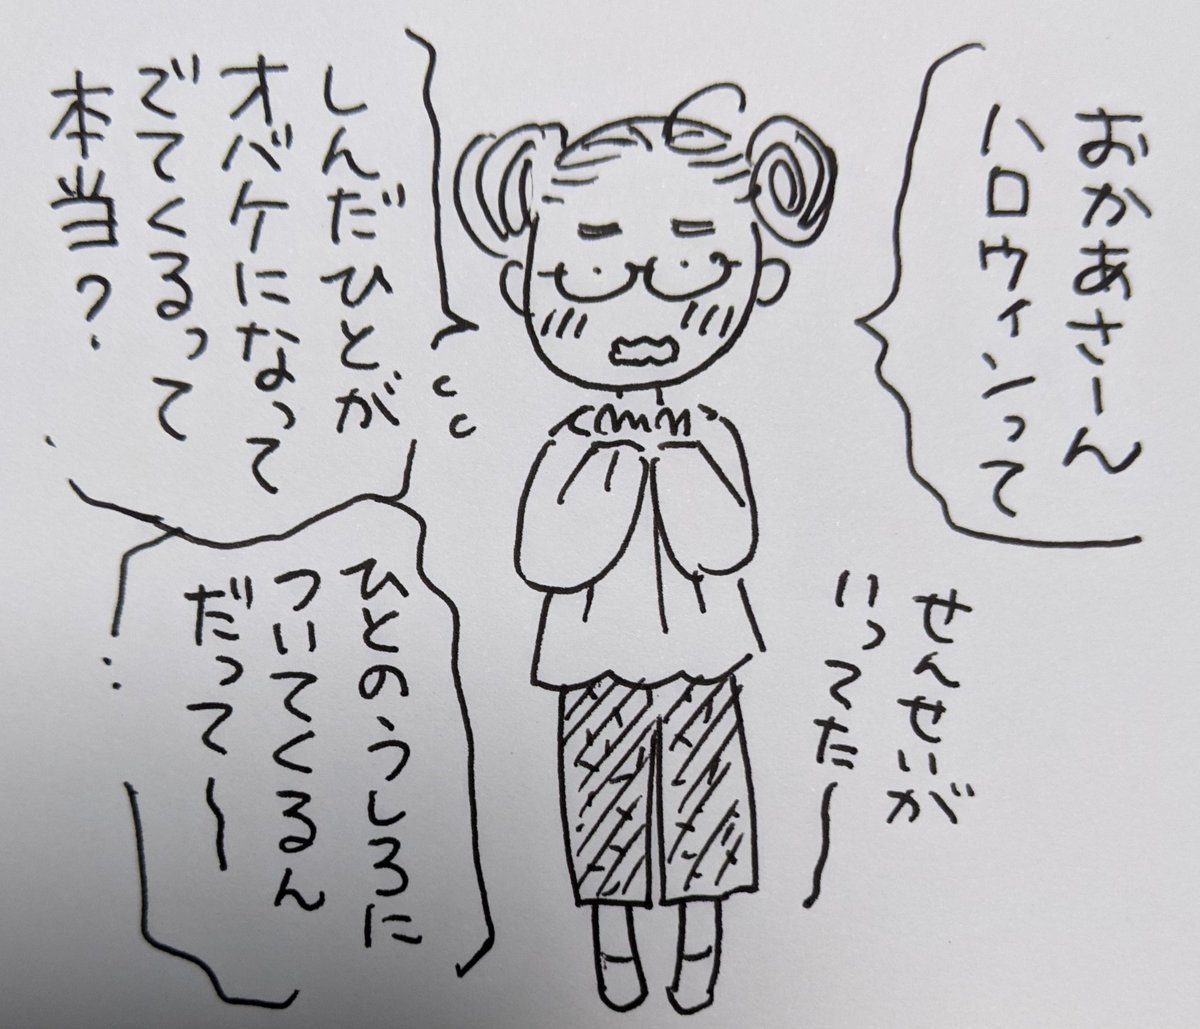 おかあさーん
ハロウィンって
しんだひとが
オバケになって
でてくるって
本当？
せんせいが
いってたー
ひとのうしろに
ついてくるん
だって〜